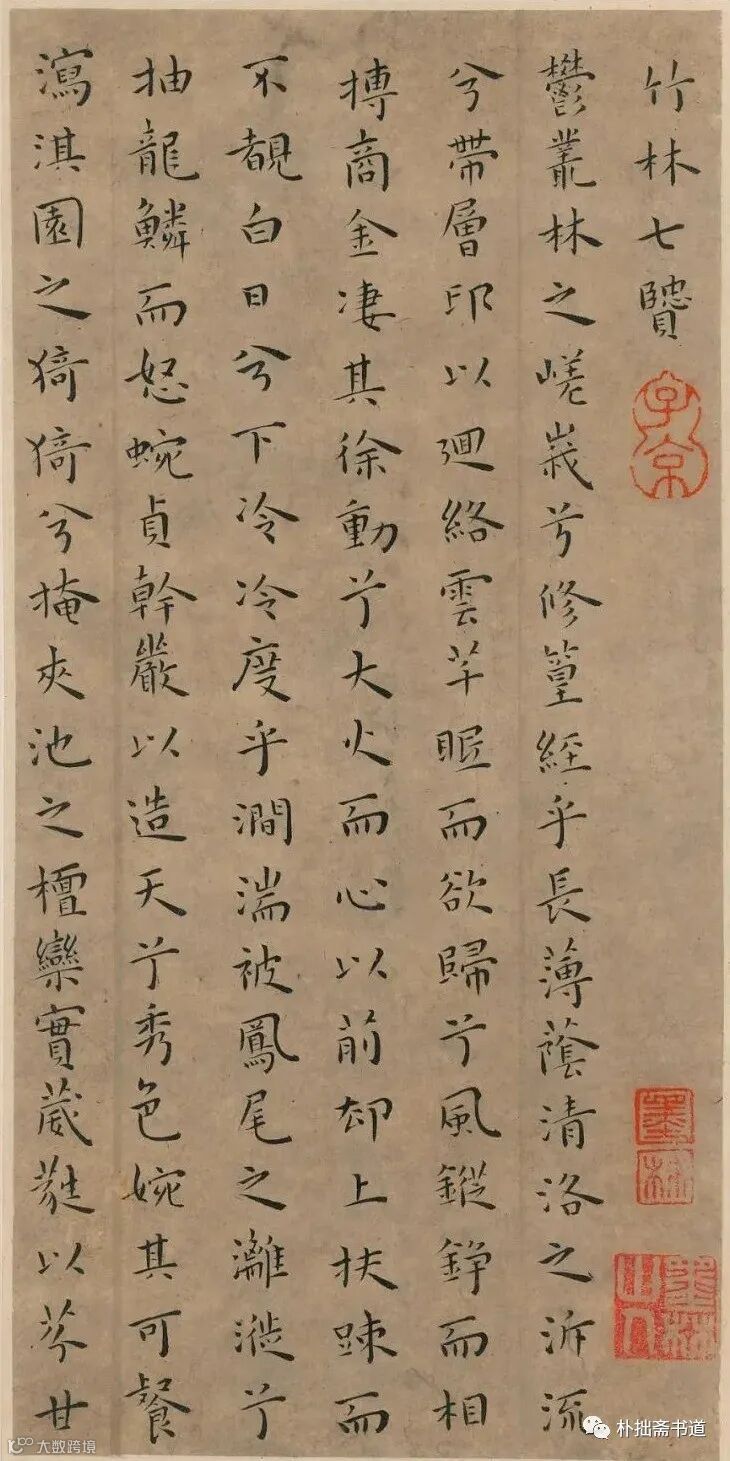 竹林七賢
鬱叢林之嵯峩兮修篁經乎長薄蔭清洛之泝流
兮帶層邙以廻絡雲芊眠而欲歸兮風鏦錚而相
摶商金凄其徐動兮大火而心以前却上扶踈而
不覩白日兮下冷冷度乎澗湍被鳳尾之灕漇兮
抽龍鱗而怒蜿貞幹嚴以造天兮秀色婉其可餐
瀉淇園之猗猗兮掩夾池之檀欒實葳蕤以芩甘
子京
墨林
墨林山人
朴拙斋书道
大数跨境